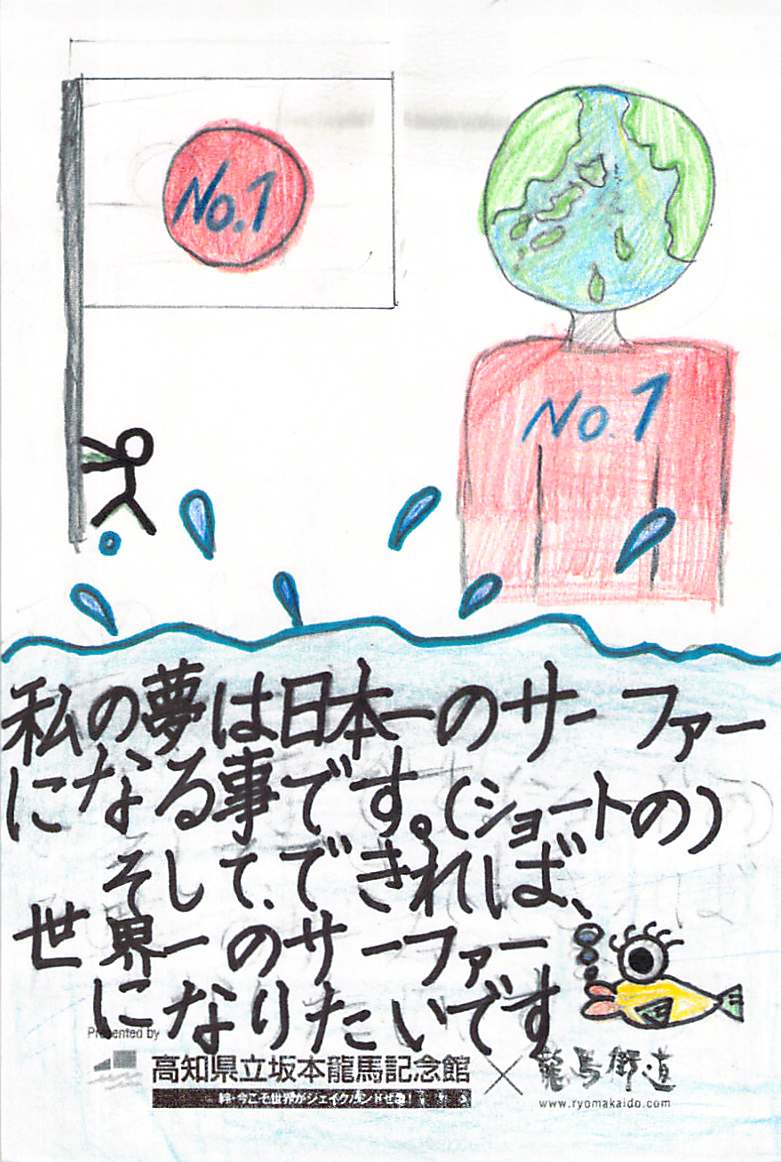 No.1
No.1
私の夢は日本一のサーファー
になる事です。(ショートの)
そして、できれば、
世界一のサーファー
になりたいです
Presented by
高知県立坂本龍馬記念館
龍馬街道
www.ryomakaido.com